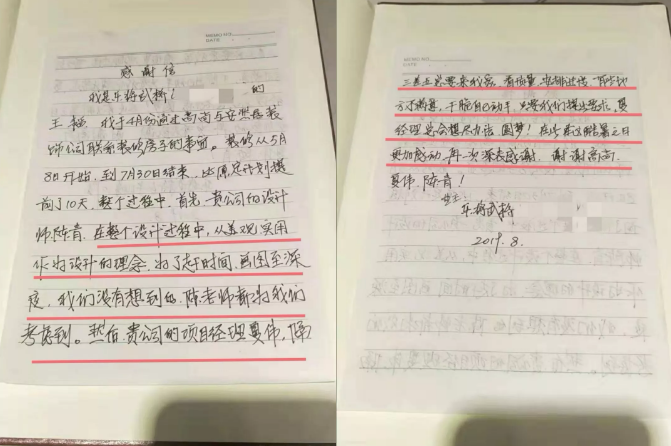 MEMO NO.
DATE
感谢信
我是乐府武桥! 的
王 我于4月份通过高尚与安然居装
饰公司联系装修房子的事宜。装修从5月
8日开始,到7月30日结束,比原定计划提
前了10天,整个过程中,首先,贵公司的设计
师陈青,在整个设计过程中,从美观实用
作为设计的理念,为了赶时间,画图至深
夜,我们没有想到的,陈老师都为我们
考虑到。然后,贵公司的项目经理夏伟,隔
MEMO NO.
DATE
三差五总要来我家,看质量
不满意,干脆自己动手,只要我们提出要求,夏
经理总会想尽办法圆梦!在此
更加感动,再一次深表感谢,谢谢高尚、
夏伟、陈青!
业主:
2019.8.